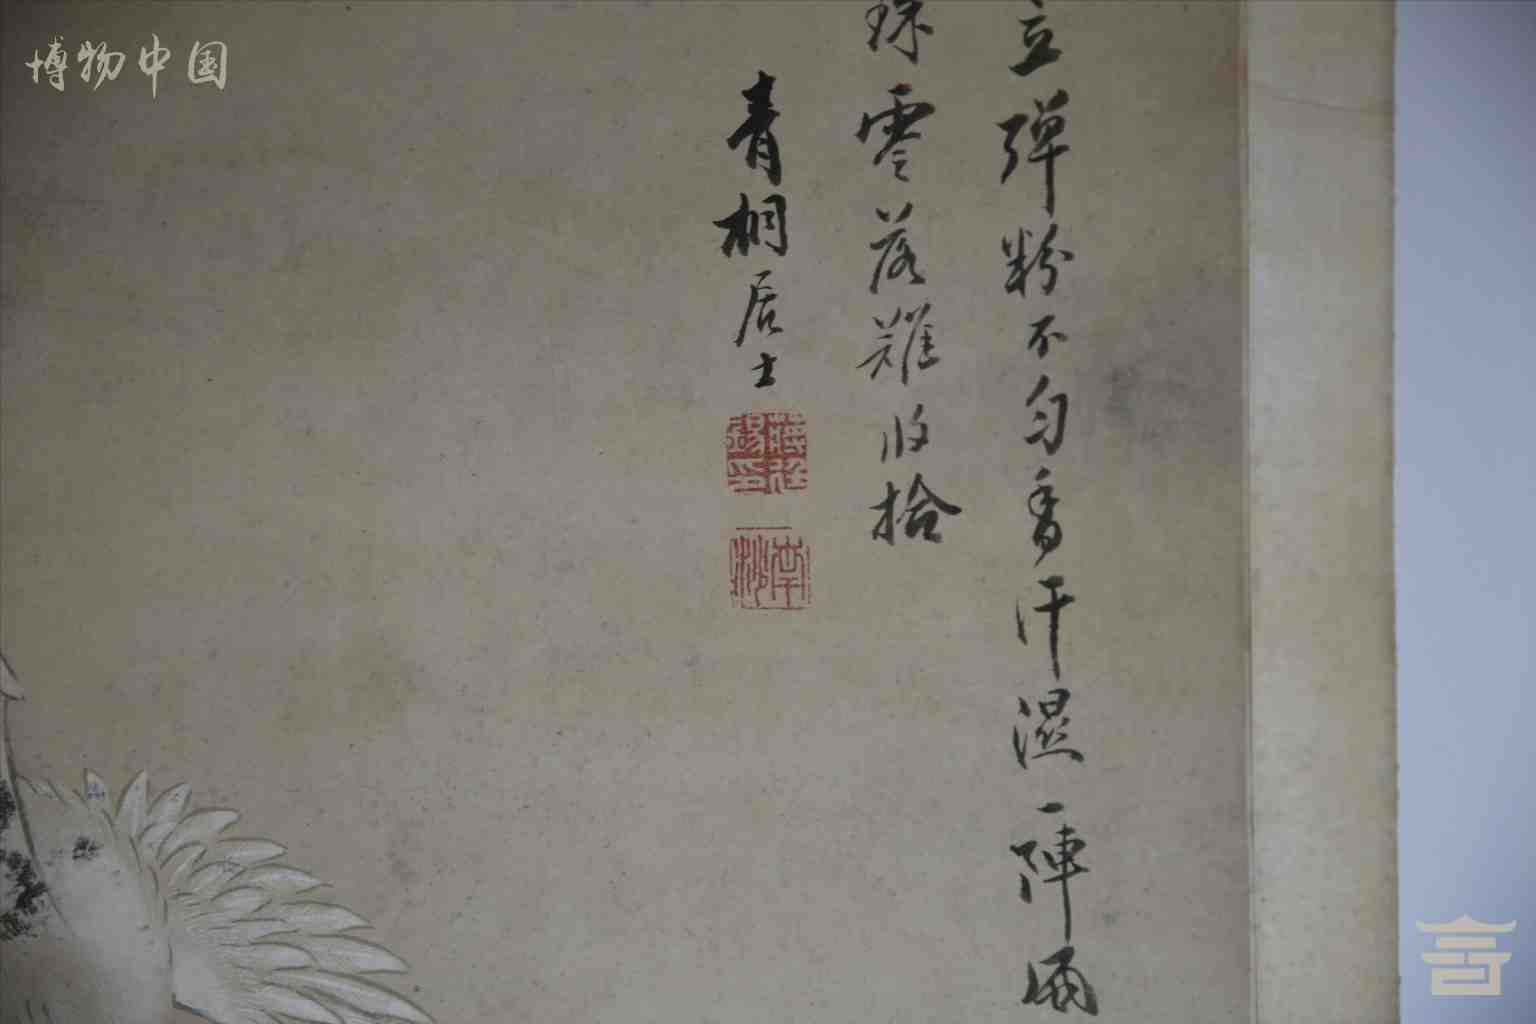 立弹粉不匀香汗湿一陣涵
珠零落難收拾
青桐居士
博物中国